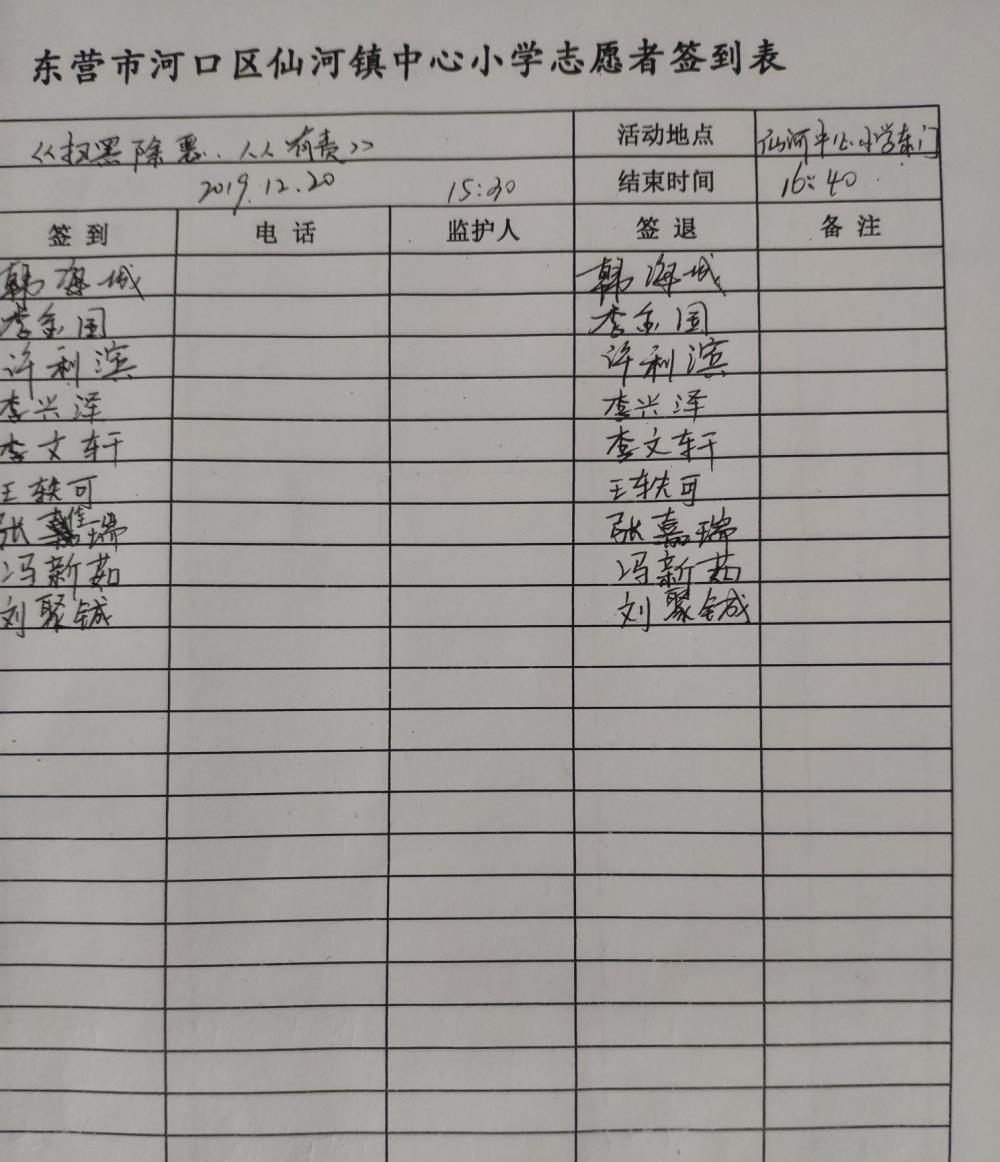 东营市河口区仙河镇中心小学志愿者签到表
《扫黑除恶、人人有责》 活动地点 仙河中心小学东门
2019.12.20 15:30 结束时间 16:40
签到 电话 监护人 签退 备注
韩海城 韩海城
李金国 李金国
许利滨 许利滨
李兴泽 李兴泽
李文轩 李文轩
王轶可 王轶可
张嘉瑞 张嘉瑞
冯新茹 冯新茹
刘聚铖 刘聚铖